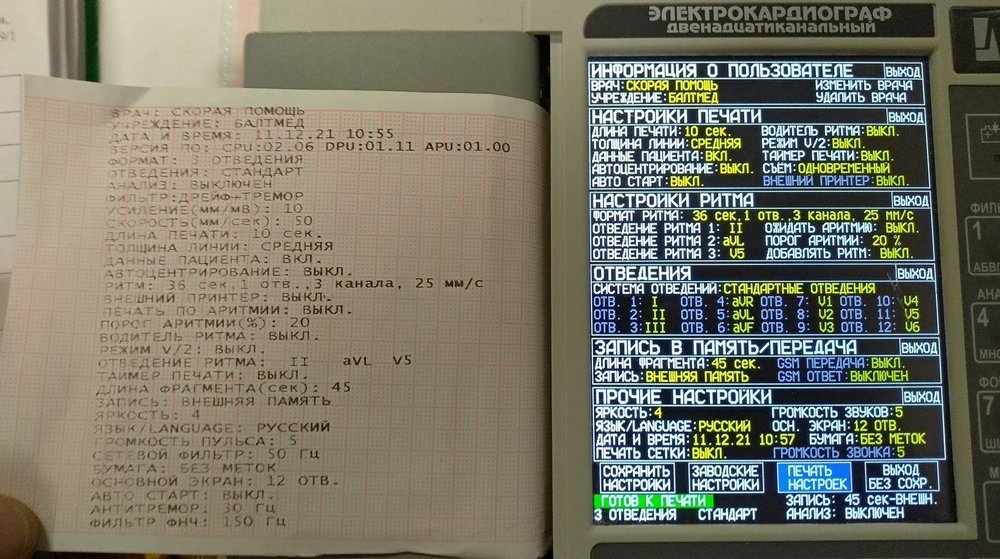 ВРАЧ: СКОРАЯ ПОМОЩЬ
УЧРЕЖДЕНИЕ: БАЛТМЕД
ДАТА И ВРЕМЯ: 11.12.21 10:55
ВЕРСИЯ ПО: CPU:02.06 DPU:01.11 APU:01.00
ФОРМАТ: 3 ОТВЕДЕНИЯ
ОТВЕДЕНИЯ: СТАНДАРТ
АНАЛИЗ: ВЫКЛЮЧЕН
ФИЛЬТР:ДРЕЙФ+ТРЕМОР
УСИЛЕНИЕ(мм/мВ): 10
СКОРОСТЬ(мм/сек): 50
ДЛИНА ПЕЧАТИ: 10 сек.
ТОЛЩИНА ЛИНИИ: СРЕДНЯЯ
ДАННЫЕ ПАЦИЕНТА: ВКЛ.
АВТОЦЕНТРИРОВАНИЕ: ВЫКЛ.
РИТМ: 36 сек,1 отв.,3 канала, 25 мм/с
ВНЕШНИЙ ПРИНТЕР: ВЫКЛ.
ПЕЧАТЬ ПО АРИТМИИ: ВЫКЛ.
ПОРОГ АРИТМИИ(%): 20
ВОДИТЕЛЬ РИТМА: ВЫКЛ.
РЕЖИМ V/2: ВЫКЛ.
ОТВЕДЕНИЕ РИТМА: II aVL V5
ТАЙМЕР ПЕЧАТИ: ВЫКЛ.
ДЛИНА ФРАГМЕНТА(сек): 45
ЗАПИСЬ: ВНЕШНЯЯ ПАМЯТЬ
ЯРКОСТЬ: 4
ЯЗЫК/LANGUAGE: РУССКИЙ
ГРОМКОСТЬ ПУЛЬСА: 5
СЕТЕВОЙ ФИЛЬТР: 50 Гц
БУМАГА: БЕЗ МЕТОК
ОСНОВНОЙ ЭКРАН: 12 ОТВ.
АВТО СТАРТ: ВЫКЛ.
АНТИТРЕМОР: 30 Гц
ФИЛЬТР ФНЧ: 150 Гц
ЭЛЕКТРОКАРДИОГРАФ
двенадцатиканальный
ИНФОРМАЦИЯ О ПОЛЬЗОВАТЕЛЕ ВЫХОД
ВРАЧ:СКОРАЯ ПОМОЩЬ ИЗМЕНИТЬ ВРАЧА
УЧРЕЖДЕНИЕ:БАЛТМЕД УДАЛИТЬ ВРАЧА
НАСТРОЙКИ ПЕЧАТИ ВЫХОД
ДЛИНА ПЕЧАТИ:10 сек. ВОДИТЕЛЬ РИТМА:ВЫКЛ.
ТОЛЩИНА ЛИНИИ:СРЕДНЯЯ РЕЖИМ V/2:ВЫКЛ.
ДАННЫЕ ПАЦИЕНТА:ВКЛ. ТАЙМЕР ПЕЧАТИ:ВЫКЛ.
АВТОЦЕНТРИРОВАНИЕ:ВЫКЛ. СЪЕМ:ОДНОВРЕМЕННЫЙ
АВТО СТАРТ:ВЫКЛ. ВНЕШНИЙ ПРИНТЕР:ВЫКЛ.
НАСТРОЙКИ РИТМА ВЫХОД
ФОРМАТ РИТМА: 36 сек,1 отв.,3 канала, 25 мм/с
ОТВЕДЕНИЕ РИТМА 1: II ОЖИДАТЬ АРИТМИЮ: ВЫКЛ.
ОТВЕДЕНИЕ РИТМА 2:aVL ПОРОГ АРИТМИИ: 20 %
ОТВЕДЕНИЕ РИТМА 3: V5 ДОБАВЛЯТЬ РИТМ: ВЫКЛ.
ОТВЕДЕНИЯ ВЫХОД
СИСТЕМА ОТВЕДЕНИЙ:СТАНДАРТНЫЕ ОТВЕДЕНИЯ
ОТВ. 1: I ОТВ. 4:aVR ОТВ. 7: V1 ОТВ. 10: V4
ОТВ. 2: II ОТВ. 5:aVL ОТВ. 8: V2 ОТВ. 11: V5
ОТВ. 3:III ОТВ. 6:aVF ОТВ. 9: V3 ОТВ. 12: V6
ЗАПИСЬ В ПАМЯТЬ/ПЕРЕДАЧА ВЫХОД
ДЛИНА ФРАГМЕНТА:45 сек. GSM ПЕРЕДАЧА:ВЫКЛ.
ЗАПИСЬ:ВНЕШНЯЯ ПАМЯТЬ GSM ОТВЕТ:ВЫКЛЮЧЕН
ПРОЧИЕ НАСТРОЙКИ ВЫХОД
ЯРКОСТЬ:4 ГРОМКОСТЬ ЗВУКОВ:5
ЯЗЫК/LANGUAGE:РУССКИЙ ОСН. ЭКРАН:12 ОТВ.
ДАТА И ВРЕМЯ:11.12.21 10:57 БУМАГА:БЕЗ МЕТОК
ПЕЧАТЬ СЕТКИ:ВЫКЛ. ГРОМКОСТЬ ЗВОНКА:5
СОХРАНИТЬ НАСТРОЙКИ ЗАВОДСКИЕ НАСТРОЙКИ ПЕЧАТЬ НАСТРОЕК ВЫХОД БЕЗ СОХР.
ГОТОВ К ПЕЧАТИ ЗАПИСЬ: 45 сек-ВНЕШН.
3 ОТВЕДЕНИЯ СТАНДАРТ АНАЛИЗ: ВЫКЛЮЧЕН
1
4
7